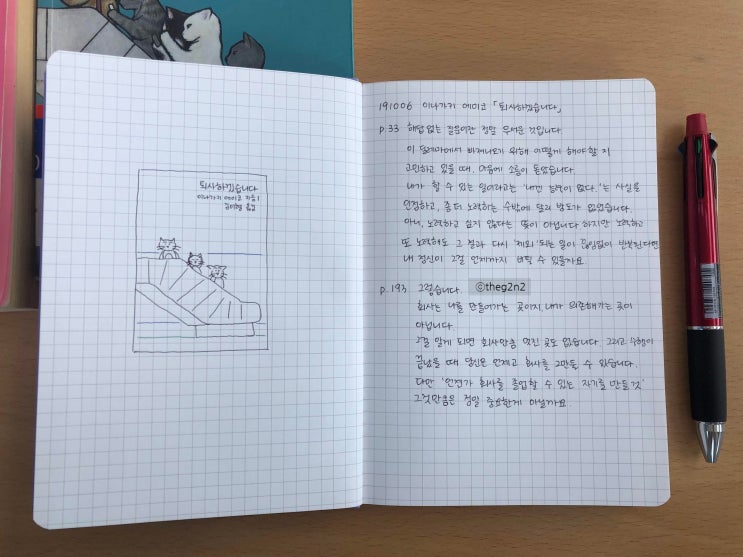 퇴사하겠습니다
이나가키 에미코 지음
김미형 옮김
191006 이나가키 에미코 「퇴사하겠습니다」
p.33 해답 없는 질문이란 정말 무서운 것입니다.
이 딜레마에서 빠져나오기 위해 어떻게 해야할 지
고민하고 있을 때, 마음에 소름이 돋았습니다.
내가 할 수 있는 일이라고는 '내겐 능력이 없다.'는 사실을
인정하고, 좀 더 노력하는 수밖에 달리 방도가 없었습니다.
아니, 노력하고 싶지 않다는 뜻이 아닙니다. 하지만 노력하고
또 노력해도 그 결과 다시 '제외'되는 일이 끊임없이 반복된다면
내 정신이 그걸 언제까지 버틸 수 있을까요.
p.193 그렇습니다. ⓒtheg2n2
회사는 나를 만들어가는 곳이지, 내가 의존해가는 곳이
아닙니다.
그걸 알게 되면 회사만큼 멋진 곳도 없습니다. 그리고 수행이
끝났을 때 당신은 언제고 회사를 그만둘 수 있습니다.
다만 '언젠가 회사를 졸업할 수 있는 자기를 만들 것'
그것만큼은 정말 중요한게 아닐까요.